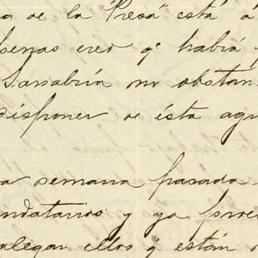 a de la Presa" está á
penas creo qe habrá
Sanabria no obstan
disponer de ésta agu
a semana pasada
ndatarios y ya proc
alegan ellos q están